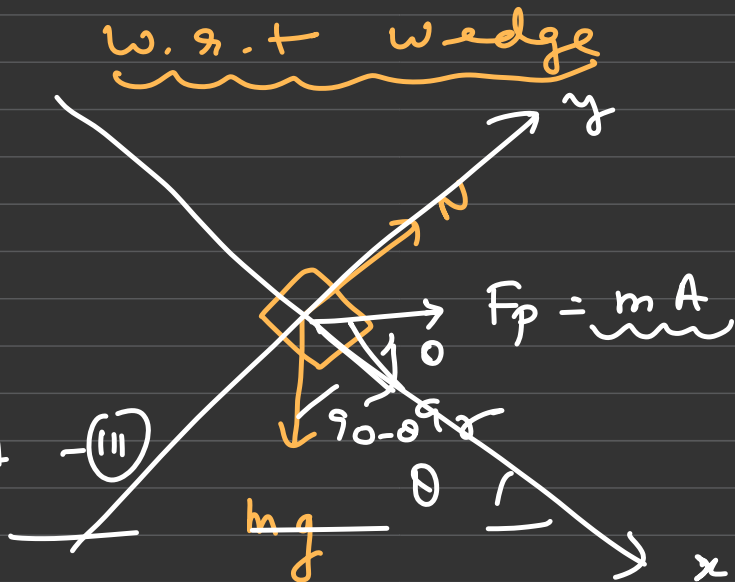 w.r.t wedge
y
N
F_p = mA
θ
90-θ a_r
-(III)
θ
mg
x